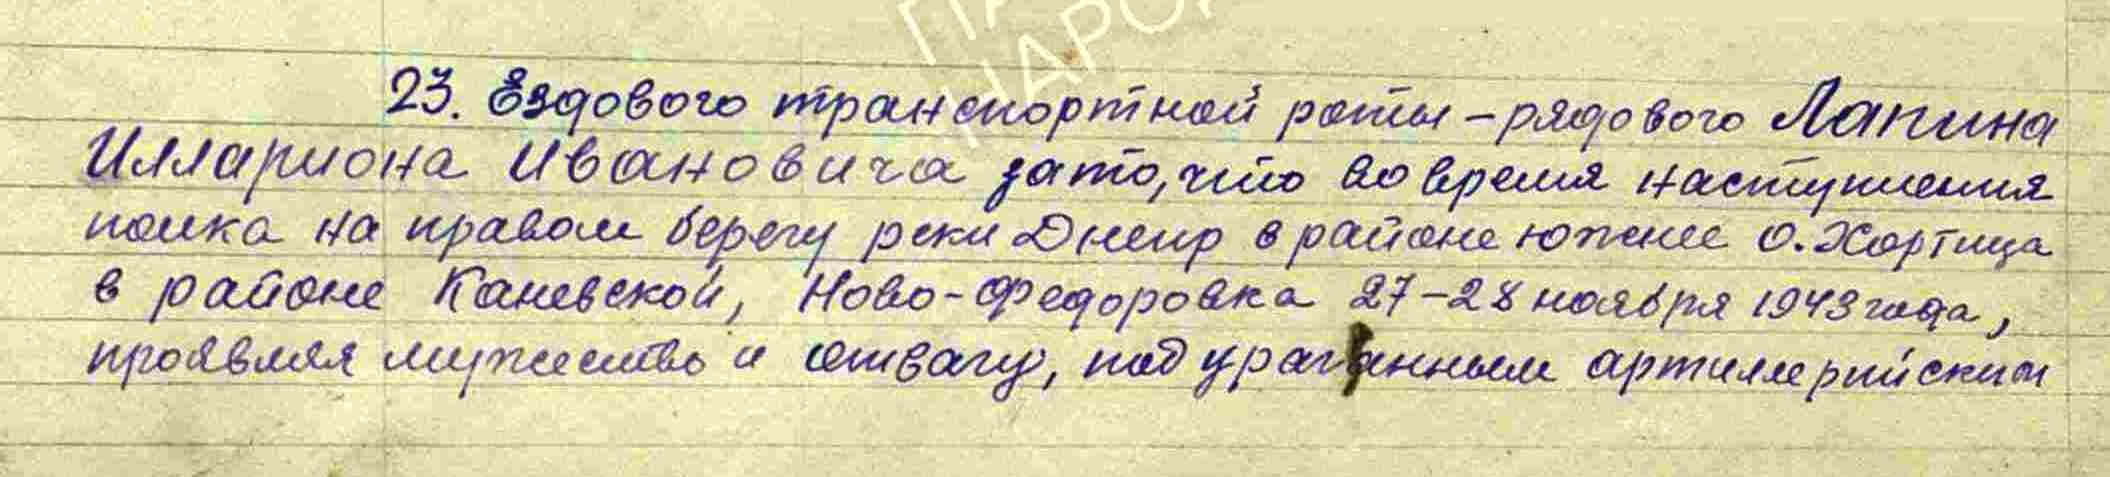 ПА
НАРО
23. Ездового транспортной роты - рядового Лапина
Иллариона Ивановича за то, что во время наступления
полка на правом берегу реки Днепр в районе южнее о. Хортица
в районе Каневской, Ново-Федоровка 27-28 ноября 1943 года,
проявляя мужество и отвагу, под ураганным артиллерийским